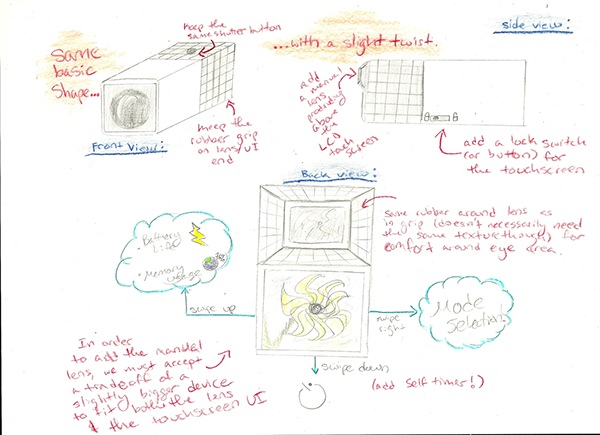 Same
basic
Shape...
Keep the
same shutter button
...with a slight twist.
side view:
add
a manual
lens
protruding
above
the
LCD
touch
screen
keep the
rubber grip
on lens/UI
end
Front View:
add a lock switch
(or button) for
the touchscreen
Back view:
same rubber around lens as
in grip (doesn't necessarily need
the same texture though) for
comfort around eye area.
• Battery
Life
• Memory
usage
swipe up
swipe
right
Mode
Selection
In order
to add the manual
lens, we must accept
a tradeoff of a
slightly bigger device
to fit both the lens
& the touchscreen UI
swipe down
(add self timer!)